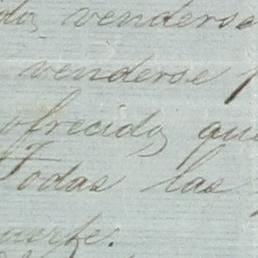 venderse
venderse
ofrecido, que
Todas las